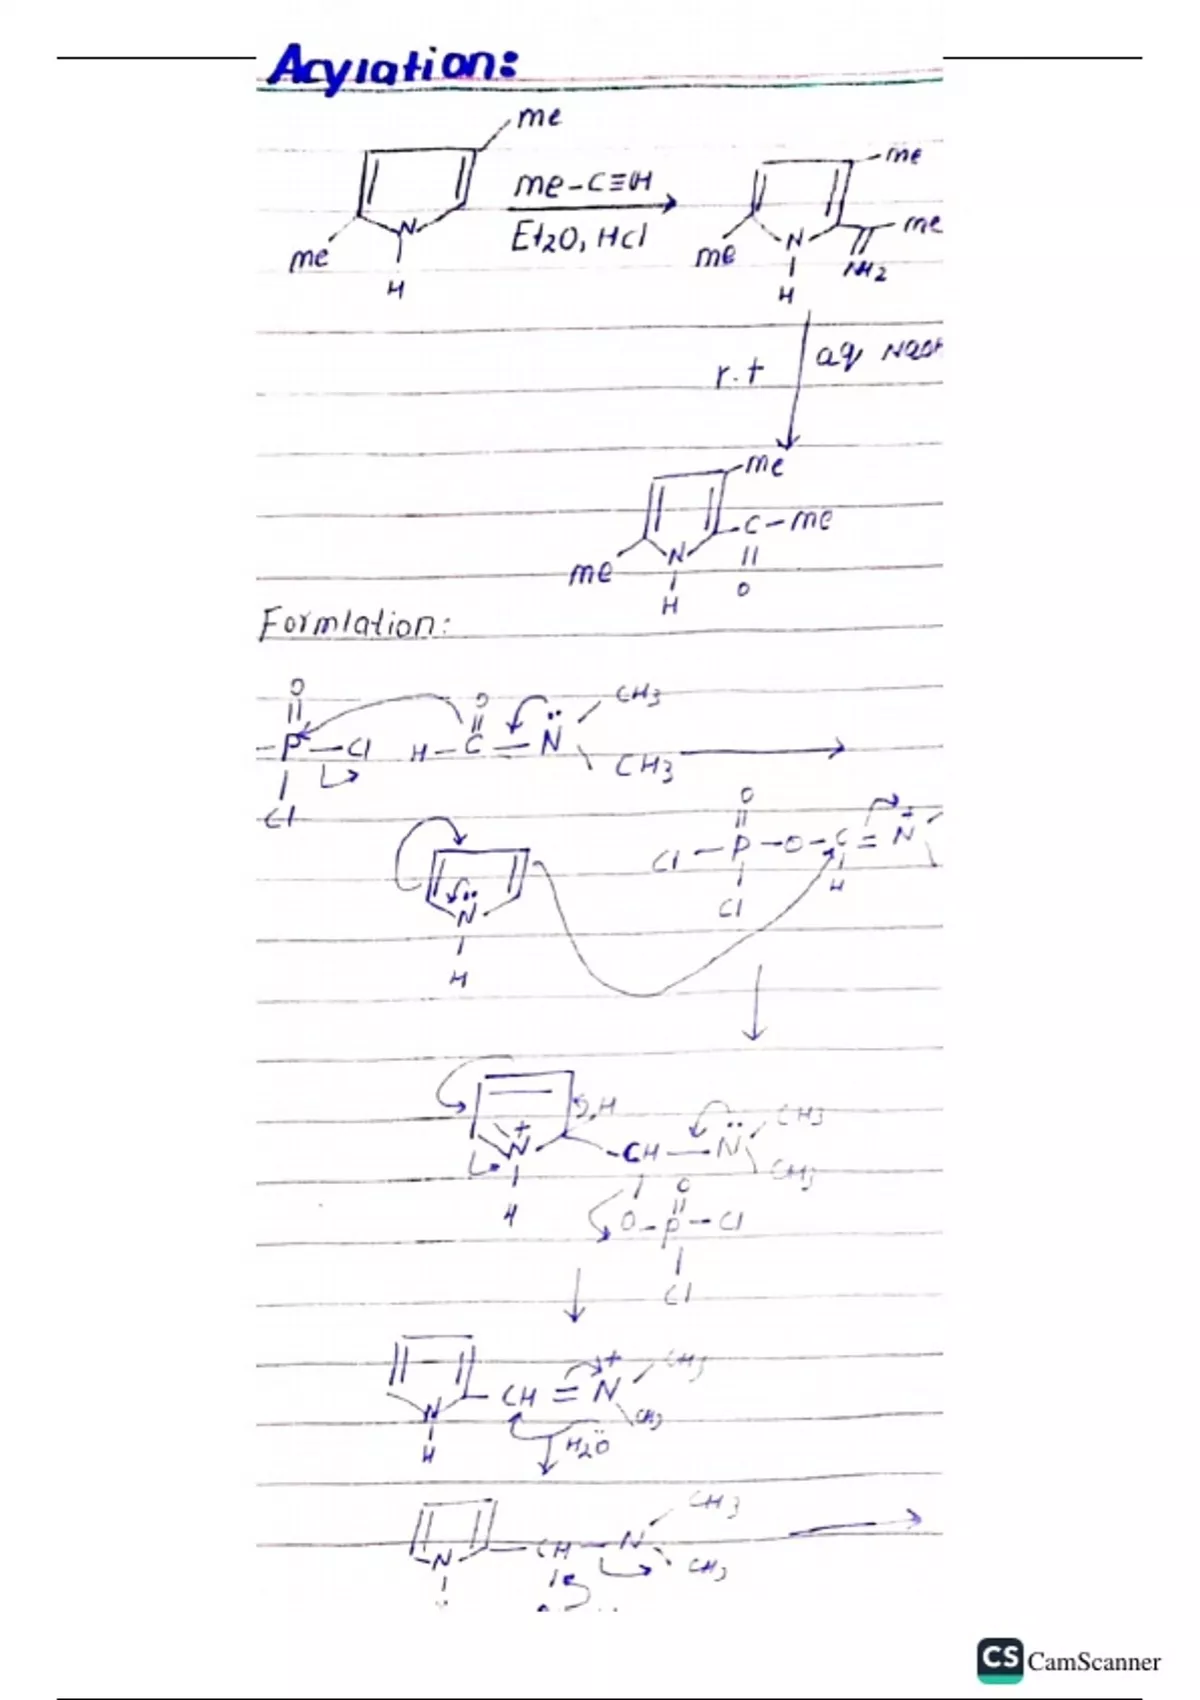 Acylation:
me
me-C≡CH
Et2O, HCl
me
N
H
me
me
me
N
H
NH2
r.t
aq NaOH
me
C-me
me
N
H
O
Formlation:
O
P-Cl
Cl
O
H-C-N
CH3
CH3
O
Cl-P-O-C=N
+
H
Cl
N
H
H
+
N
H
CH-N
CH3
CH3
O
O-P-Cl
Cl
CH=N
+
CH3
CH3
N
H
H2O
N
CH-N
CH3
CH3
CS CamScanner